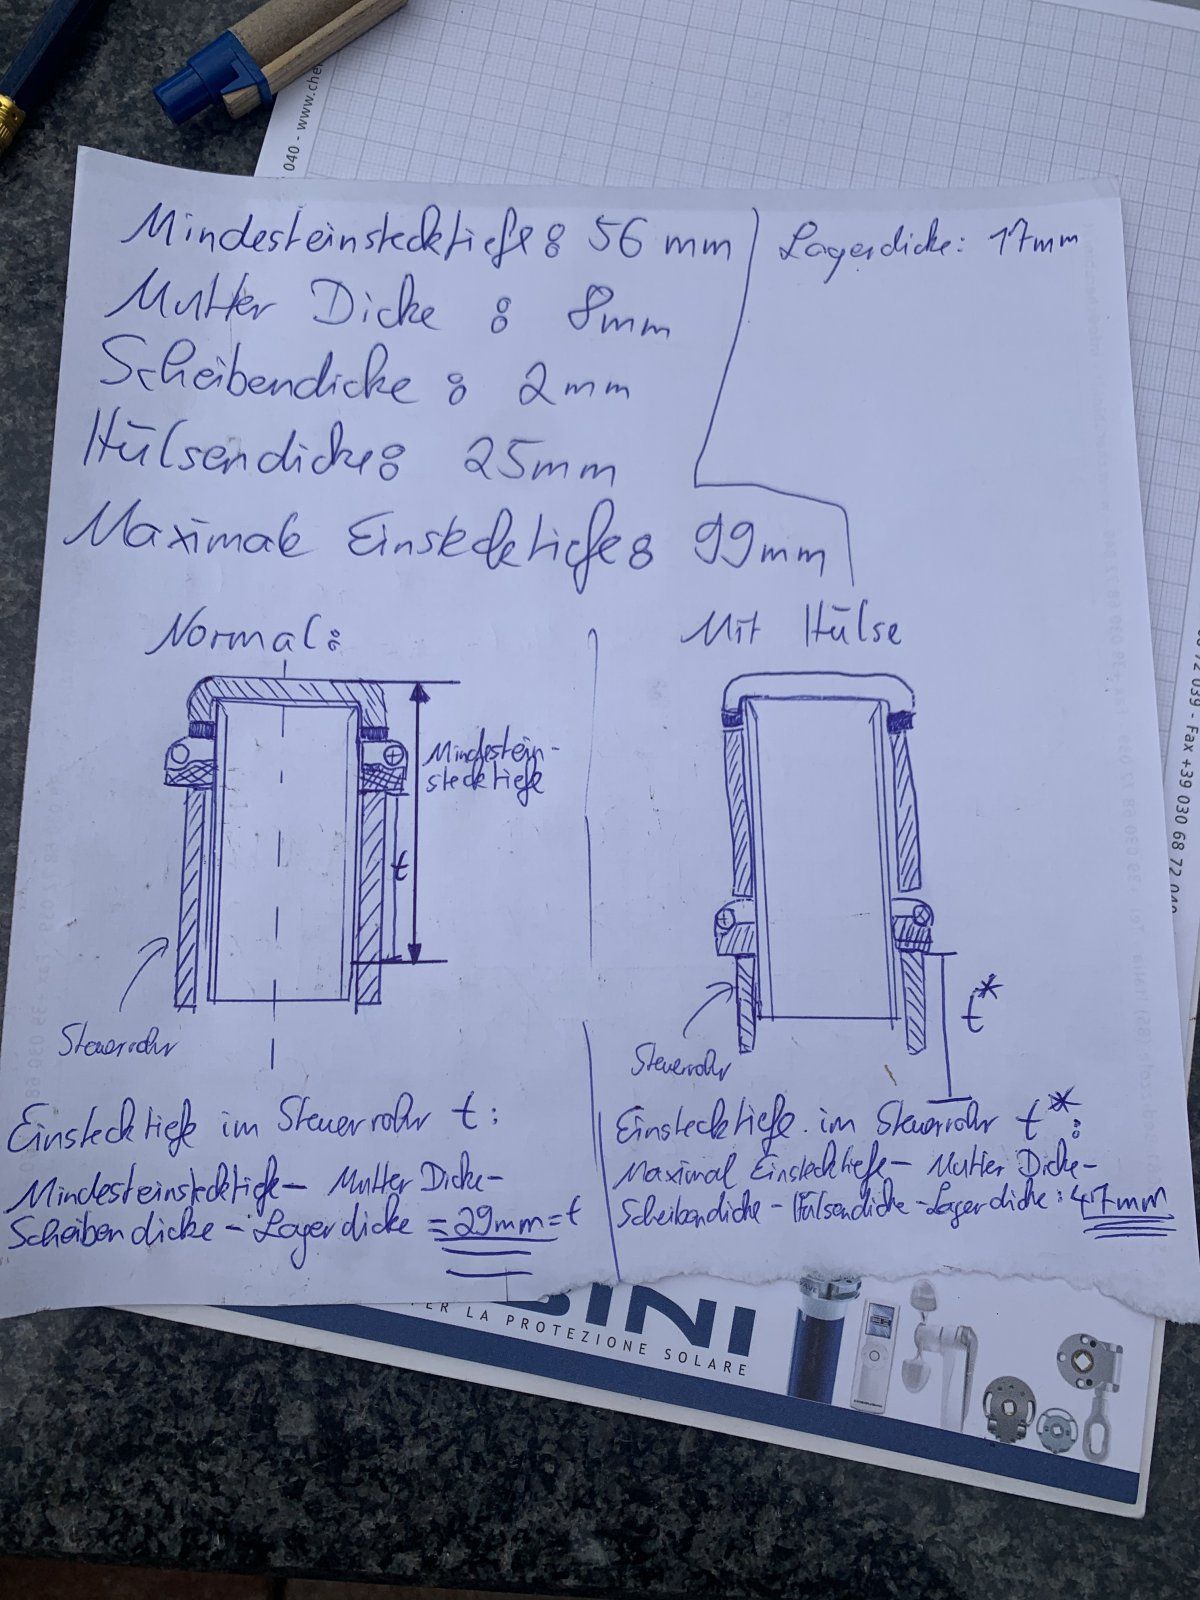 040 - www.che
Mindesteinstecktiefe: 56 mm
Lagerdicke: 17mm
Mutter Dicke : 8mm
Scheibendicke : 2mm
Hülsendicke: 25mm
Maximale Einstecktiefe: 99mm
Normal:
Mit Hülse
Mindestein-
stecktiefe
t
t*
Steuerrohr
Steuerrohr
Einstecktiefe im Steuerrohr t:
Mindesteinstecktiefe- Mutter Dicke-
Scheibendicke - Lagerdicke = 29mm = t
Einstecktiefe im Steuerrohr t*:
Maximal Einstecktiefe- Mutter Dicke-
Scheibendicke - Hülsendicke - Lagerdicke: 47mm
72 039 - Fax +39 030 68 72 040
BINI
PER LA PROTEZIONE SOLARE